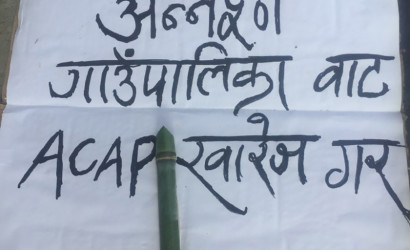 अन्नपूर्ण
गाउँपालिका वाट
ACAP खारेज गर